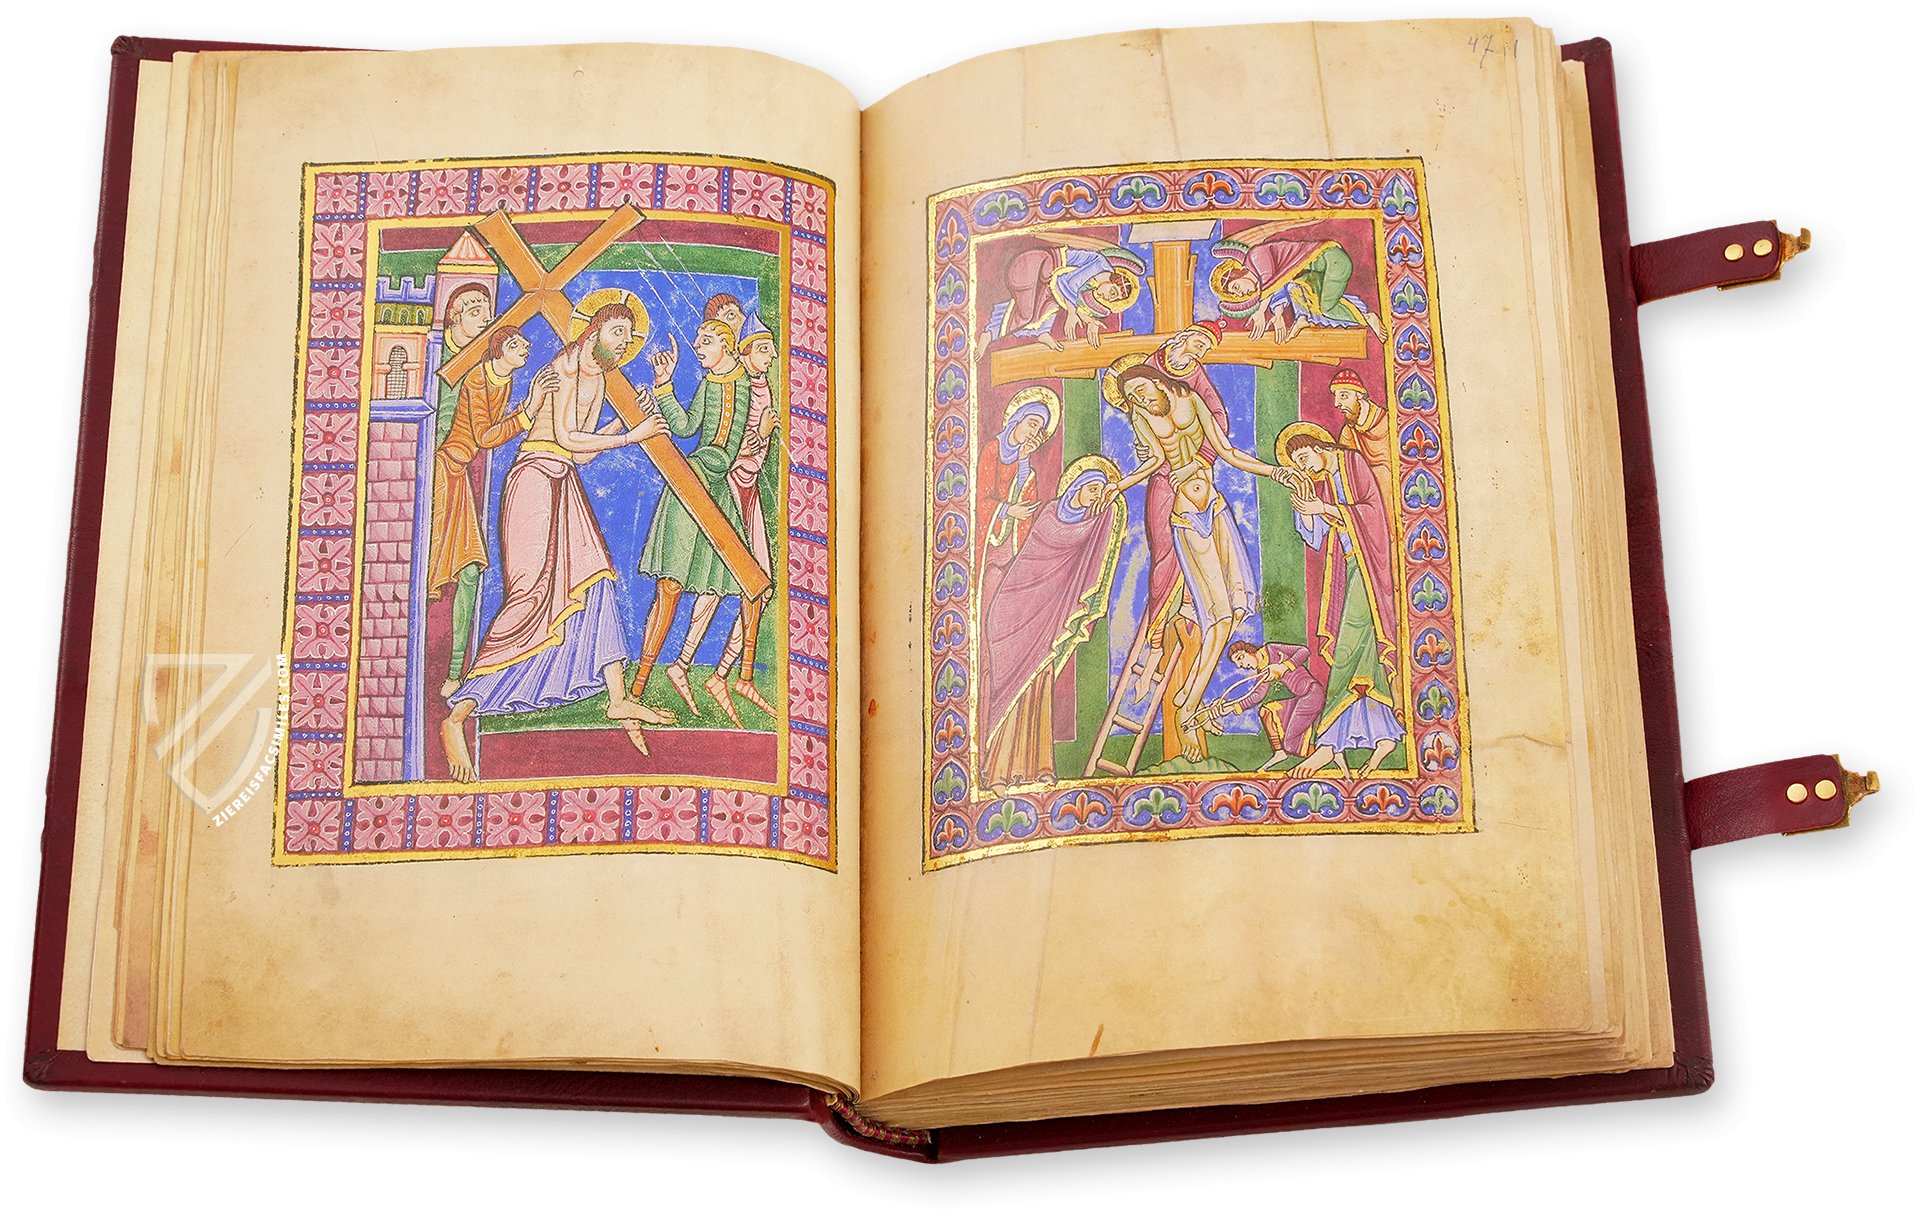 47
ZIEREISFACSIMILES.COM